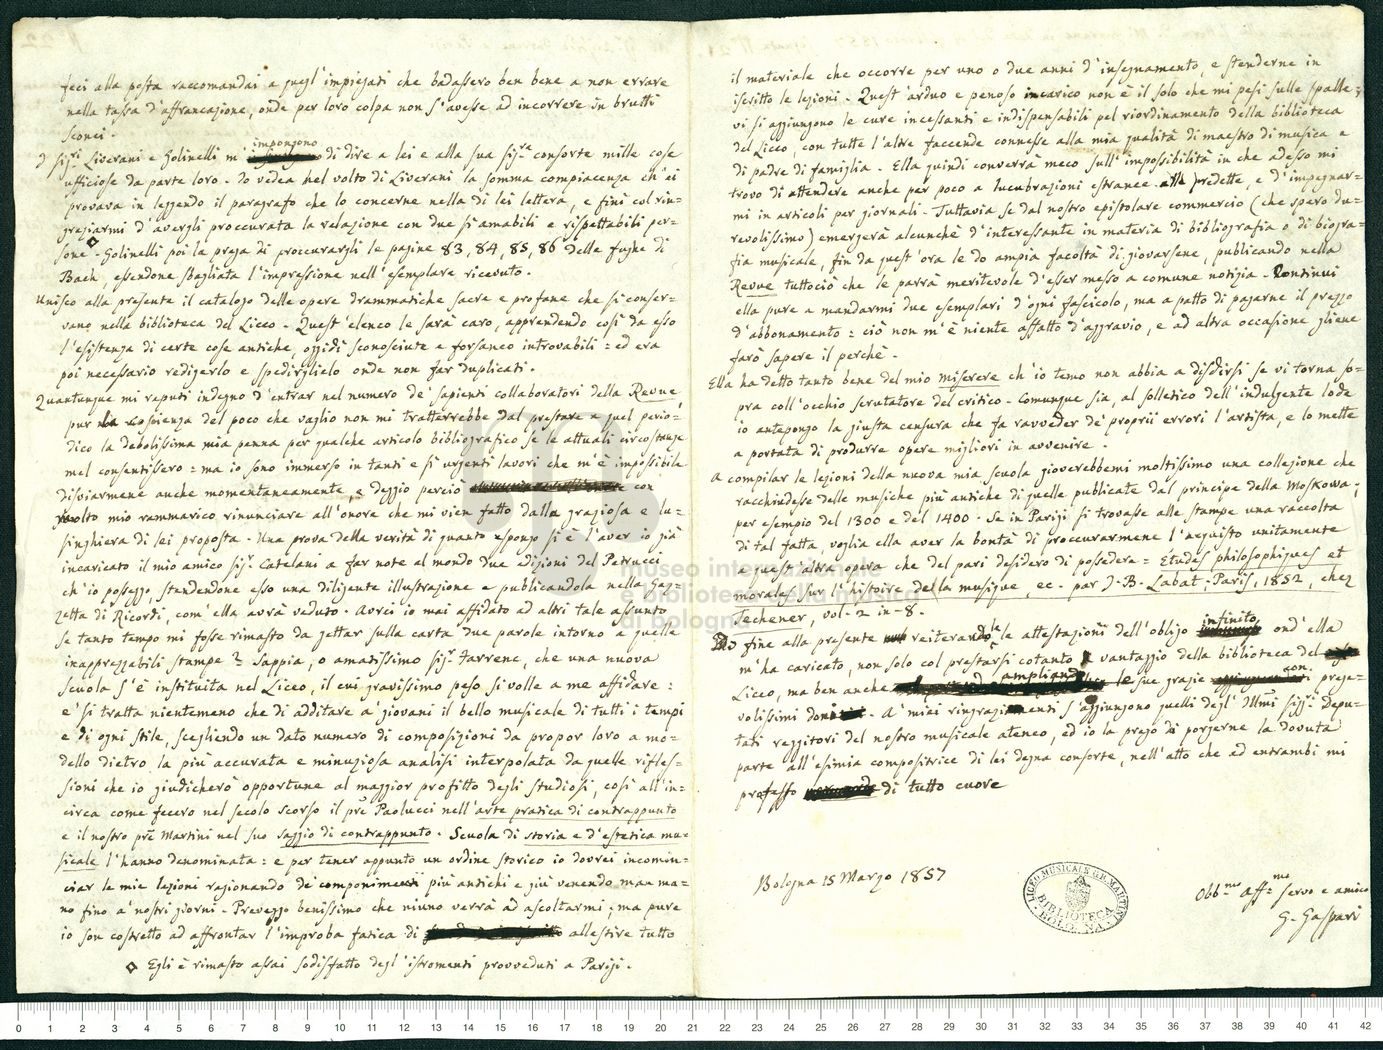 feci alla posta raccomandai a quegl'impiegati che badassero ben bene a non errare
nella tassa d'affrancazione, onde per loro colpa non s'avesse ad incorrere in brutti
sconci.
impongono
I sig.ri Liverani e Golinelli m' di dire a lei e alla sua sig.ra consorte mille cose
ufficiose da parte loro. Io vedea nel volto di Liverani la somma compiacenza ch'ei
provava in leggendo il paragrafo che lo concerne nella di lei lettera, e finì col rin=
graziarmi d'avergli proccurata la relazione con due sì amabili e rispettabili per=
sone. Golinelli poi la prega di proccurargli le pagine 83, 84, 85, 86 delle fughe di
Bach, essendone sbagliata l'impressione nell'esemplare ricevuto.
Unisco alla presente il catalogo delle opere drammatiche sacre e profane che si conser=
vano nella biblioteca del Liceo. Quest'elenco le sarà caro, apprendendo così da esso
l'esistenza di certe cose antiche, oggidì sconosciute e forsanco introvabili: ed era
poi necessario redigerlo e spedirglielo onde non far duplicati.
Quantunque mi reputi indegno d'entrar nel numero de' sapienti collaboratori della Revue
pur la coscienza del poco che vaglio non mi tratterrebbe dal prestare a quel perio=
dico la debolissima mia penna per qualche articolo bibliografico se le attuali circostanze
mel consentissero: ma io sono immerso in tanti e sì urgenti lavori che m'è impossibile
disviarmene anche momentaneamente, e deggio perciò con
molto mio rammarico rinunciare all'onore che mi vien fatto dalla graziosa e lu=
singhiera di lei proposta. Una prova della verità di quanto espongo si è l'aver io già
incaricato il mio amico sig.r Catelani a far note al mondo due edizioni del Petrucci
ch'io posseggo, stendendone esso una diligente illustrazione e publicandola nella Gaz=
zetta di Ricordi, com'ella avrà veduto. Avrei io mai affidato ad altri tale assunto
se tanto tempo mi fosse rimasto da gettar sulla carta due parole intorno a quelle
inapprezzabili stampe? Sappia, o amatissimo sig.r Farrenc, che una nuova
scuola s'è instituita nel Liceo, il cui gravissimo peso si volle a me affidare:
e' si tratta nientemeno che di additare a' giovani il bello musicale di tutti i tempi
e di ogni stile, scegliendo un dato numero di composizioni da propor loro a mo=
dello dietro la più accurata e minuziosa analisi interpolata da quelle rifles=
sioni che io giudicherò opportune al maggior profitto degli studiosi, così all'in=
circa come fecero nel secolo scorso il pre Paolucci nell'arte pratica di contrappunto
e il nostro pre Martini nel suo saggio di contrappunto. Scuola di storia e d'estetica mu=
sicale l'hanno denominata: e per tener appunto un ordine storico io dovrei incomin=
ciar le mie lezioni ragionando de' componimenti più antichi e giù venendo man ma=
no fino a' nostri giorni. Preveggo benissimo che niuno verrà ad ascoltarmi; ma pure
io son costretto ad affrontar l'improba fatica di allestire tutto
◇ Egli è rimasto assai sodisfatto degl'istromenti provveduti a Parigi.
il materiale che occorre per uno o due anni d'insegnamento, e stenderne in
iscritto le lezioni. Quest'arduo e penoso incarico non è il solo che mi pesi sulle spalle;
vi si aggiungono le cure incessanti e indispensabili pel riordinamento della biblioteca
del Liceo, con tutte l'altre faccende connesse alla mia qualità di maestro di musica e
di padre di famiglia. Ella quindi converrà meco sull'impossibilità in che adesso mi
trovo di attendere anche per poco a lucubrazioni estranee alle predette, e d'impegnar=
mi in articoli per giornali. Tuttavia se dal nostro epistolare commercio (che spero du=
revolissimo) emergerà alcunchè d'interessante in materia di bibliografia o di biogra=
fia musicale, fin da quest'ora le do ampia facoltà di giovarsene, publicando nella
Revue tuttociò che le parrà meritevole d'esser messo a comune notizia. Continui
ella pure a mandarmi due esemplari d'ogni fascicolo, ma a patto di pagarne il prezzo
d'abbonamento: ciò non m'è niente affatto d'aggravio, e ad altra occasione gliene
farò sapere il perchè.
Ella ha detto tanto bene del mio miserere ch'io temo non abbia a disdirsi se vi torna so=
pra coll'occhio scrutatore del critico. Comunque sia, al solletico dell'indulgente lode
io antepongo la giusta censura che fa ravveder de' proprii errori l'artista, e lo mette
a portata di produrre opere migliori in avvenire.
A compilar le lezioni della nuova mia scuola gioverebbemi moltissimo una collezione che
racchiudesse delle musiche più antiche di quelle publicate dal principe della Moskowa;
per esempio del 1300 e del 1400. Se in Parigi si trovasse alle stampe una raccolta
di tal fatta, voglia ella aver la bontà di proccurarmene l'acquisto unitamente
a quest'altra opera che del pari desidero di possedere: Etudes philosophiques et
morales sur l'histoire de la musique, ec. par J. B. Labat. Paris, 1852, chez
Techener, vol. 2 in-8.
infinito
Do fine alla presente reiterandole le attestazioni dell'obbligo ond'ella
m'ha caricato, non solo col prestarsi cotanto a vantaggio della biblioteca del
ampliando con
Liceo, ma ben anche le sue grazie prege=
volissimi doni. A' miei ringraziamenti s'aggiungono quelli degl'Illmi sigg.ri Depu=
tati reggitori del nostro musicale ateneo, ed io la prego di porgerne la dovuta
parte all'esimia compositrice di lei degna consorte, nell'atto che ad entrambi mi
professo di tutto cuore
Bologna 15 Marzo 1857
Obb.mo aff.mo servo e amico
G. Gaspari
LICEO MUSICALE G.B. MARTINI
BIBLIOTECA
BOLOGNA
museo internazionale
e biblioteca della musica
di bologna
0 1 2 3 4 5 6 7 8 9 10 11 12 13 14 15 16 17 18 19 20 21 22 23 24 25 26 27 28 29 30 31 32 33 34 35 36 37 38 39 40 41 42